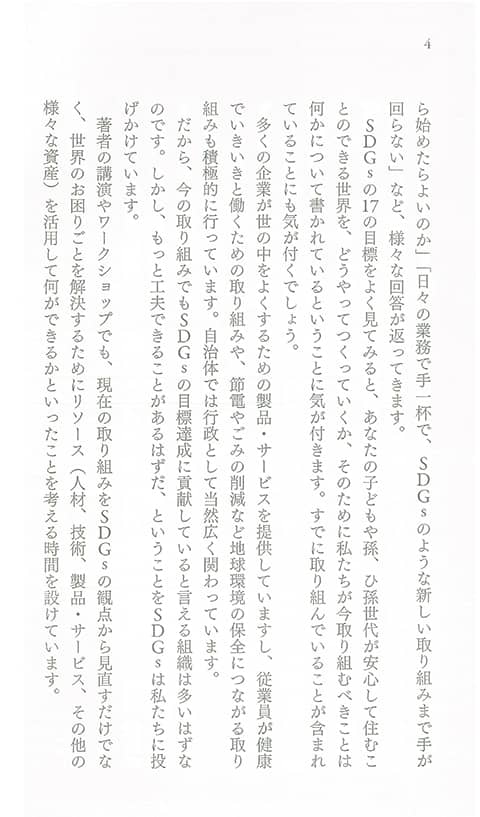 4
ら始めたらよいのか」「日々の業務で手一杯で、SDGsのような新しい取り組みまで手が
回らない」など、様々な回答が返ってきます。
SDGsの17の目標をよく見てみると、あなたの子どもや孫、ひ孫世代が安心して住むこ
とのできる世界を、どうやってつくっていくか、そのために私たちが今取り組むべきことは
何かについて書かれているということに気が付きます。すでに取り組んでいることが含まれ
ていることにも気が付くでしょう。
多くの企業が世の中をよくするための製品・サービスを提供していますし、従業員が健康
でいきいきと働くための取り組みや、節電やごみの削減など地球環境の保全につながる取り
組みも積極的に行っています。自治体では行政として当然広く関わっています。
だから、今の取り組みでもSDGsの目標達成に貢献していると言える組織は多いはずな
のです。しかし、もっと工夫できることがあるはずだ、ということをSDGsは私たちに投
げかけています。
著者の講演やワークショップでも、現在の取り組みをSDGsの観点から見直すだけでな
く、世界のお困りごとを解決するためにリソース（人材、技術、製品・サービス、その他の
様々な資産）を活用して何ができるかといったことを考える時間を設けています。